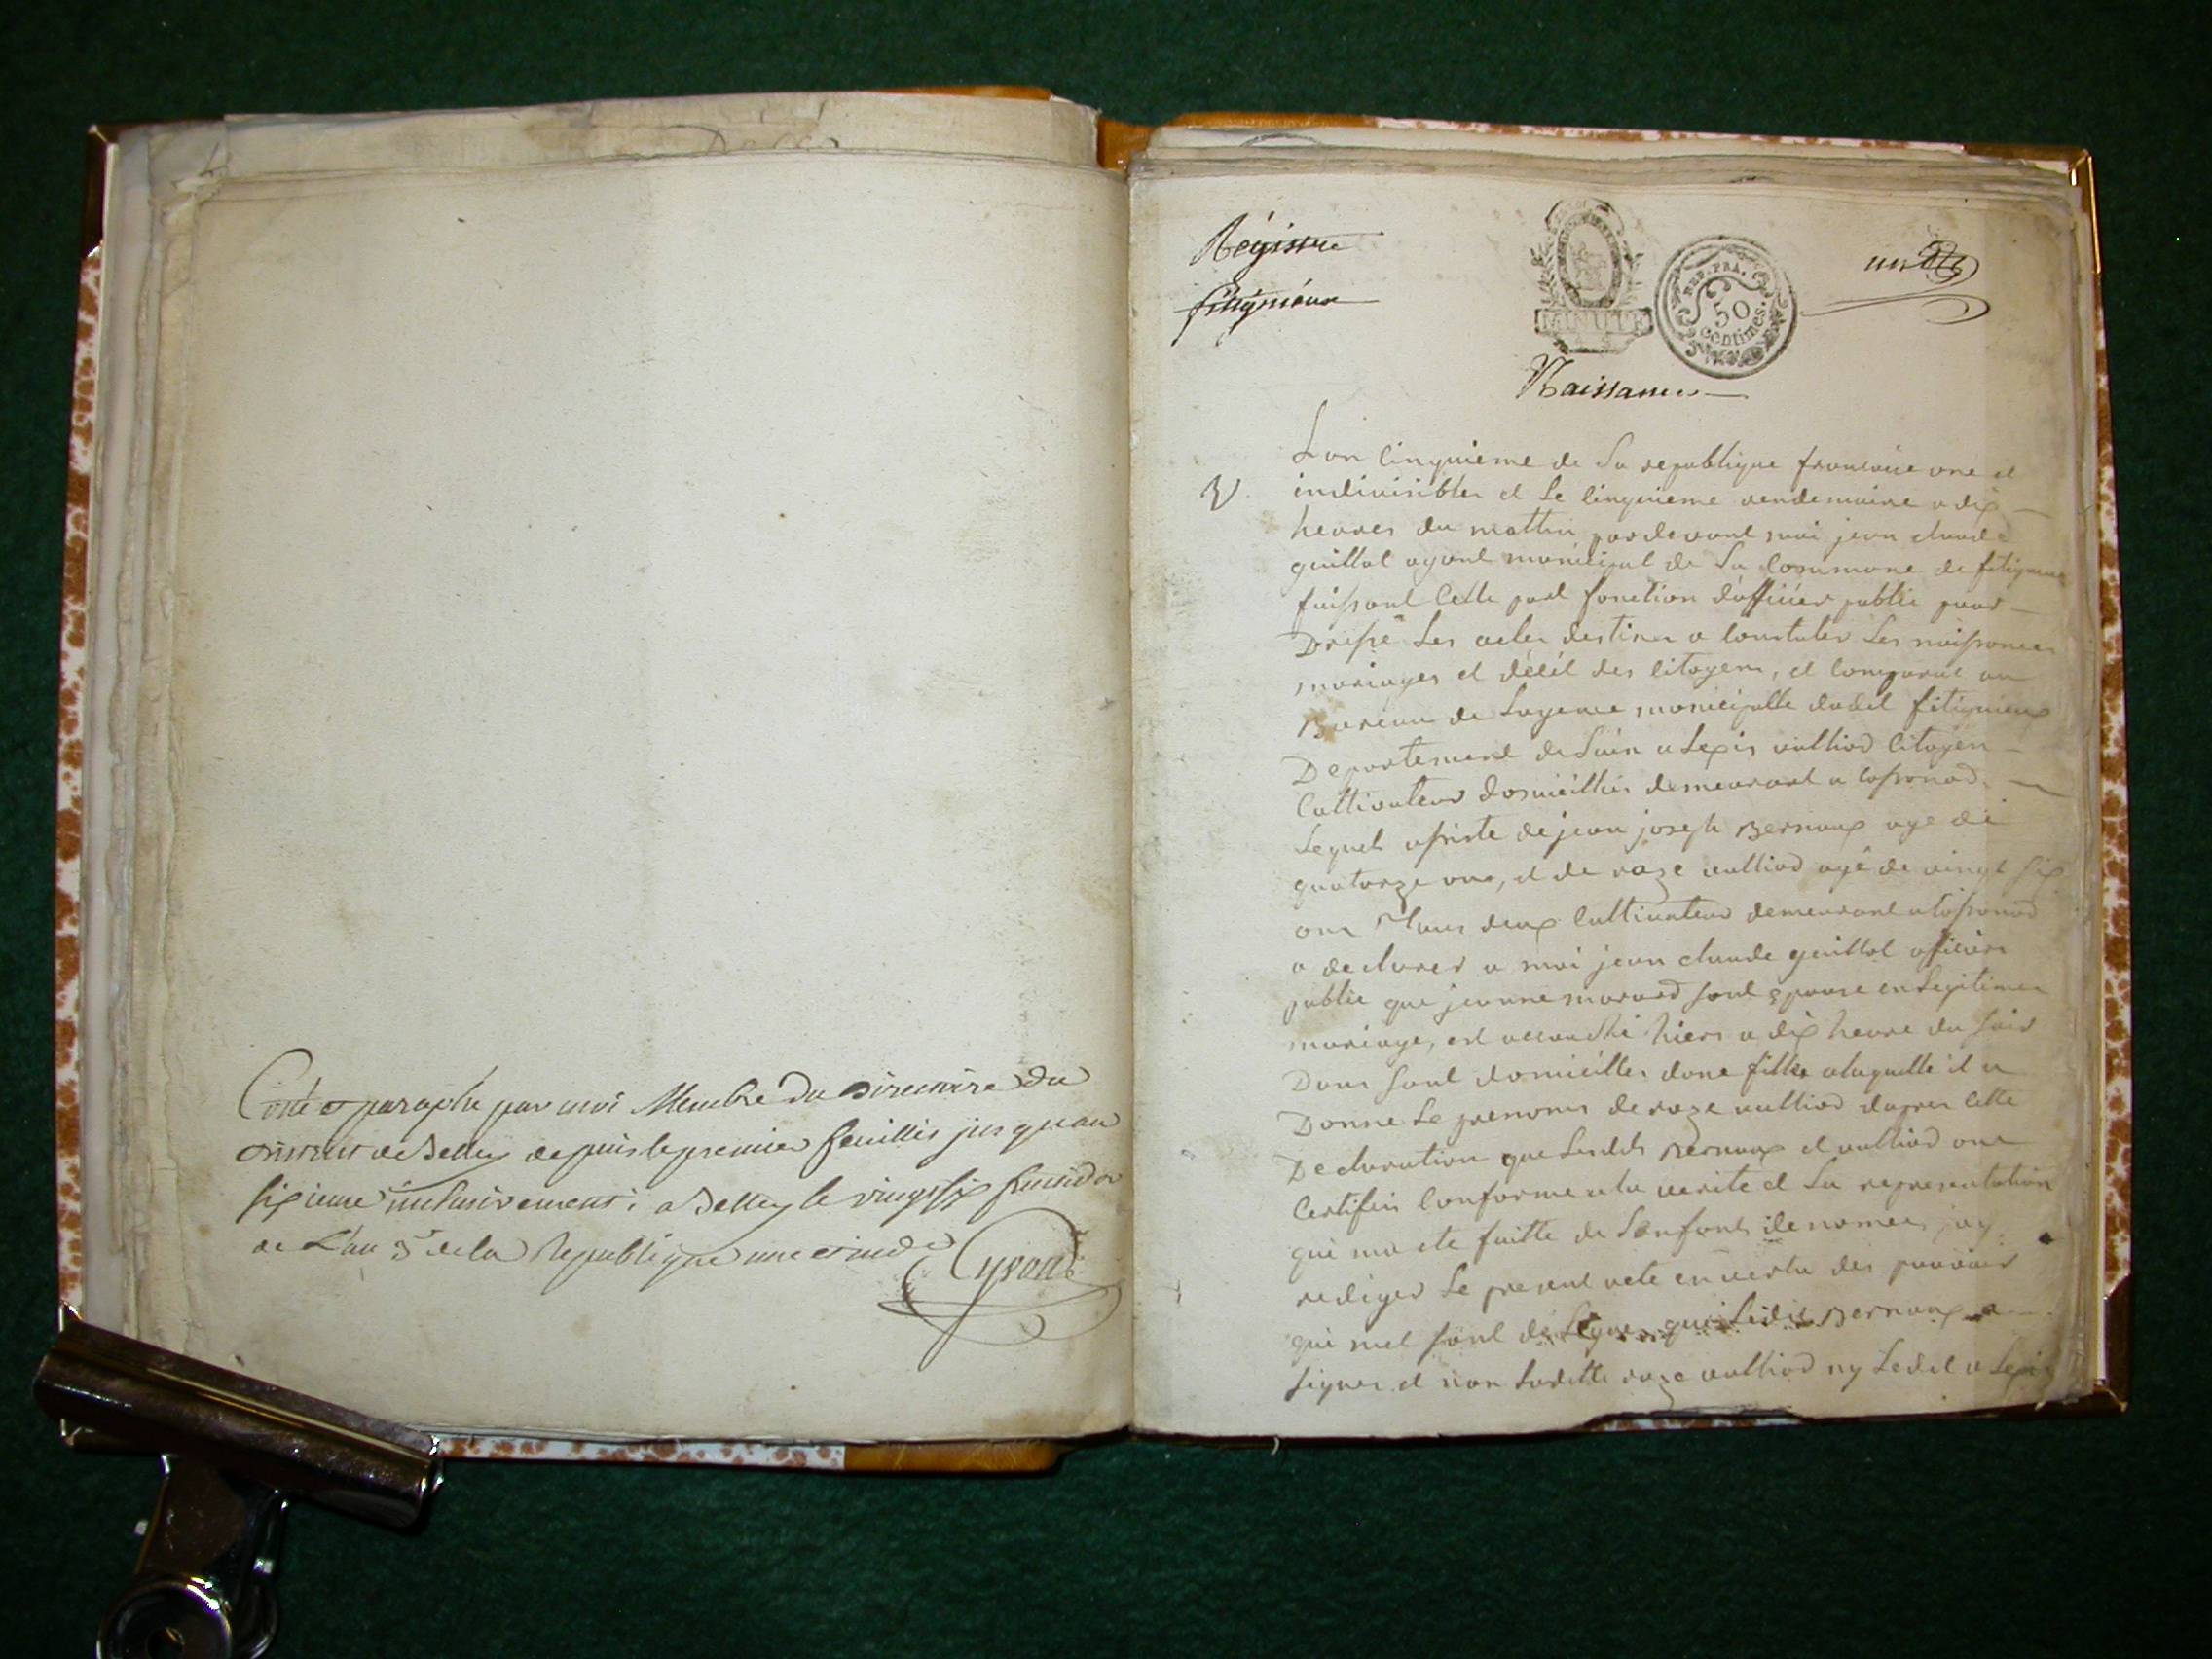 Cotté et paraphé par moi Membre Du Directoire du
District de Belley depuis le premier feuillet jusquau
sixieme inclusivement; a Belley le vingt six fructidor
de L'an de la République une et indé
Régistre
fitignieux
MINUTE
REP. FRA.
50
Centimes.
un
Naissances
Lan Cinquieme de La republique francaise une et
indivisibles et Le Cinquieme vendemiaire a dix
heures du mattin pardevant moi jean claude
guillot agent municipal de La Commune de fitignieux
faissant Cette part fonction d'officier public pour
Dressé Les actes destiner a Constater Les naissances
mariages et décét des Citoyens, et Comparut au
Bureau de Lagence municipalle dudit fitignieux
Departement de Lain alexis vulliod Citoyen
Cultivateur domicillier demeurant a Cossonod
Lequel assisté de jean joseph Bernoux age de
quatorze ans, et de roze vulliod agé de vingt six
ans Tous deux Cultivateur demeurant a Cossonod
a declarer a moi jean claude guillot officiers
public que jeanne morard sont epouse en Legitimes
mariage, est accouché hiers a dix heure du soir
Dans sont domicilles dune fillie alaquelle il a
Donne Le prenoms de roze vulliod dapres Cette
Declaration que Lesdits Bernoux et vulliod ont
Certifier Conforme a la verite et La representation
qui ma ete faitte de Lenfant denomer jay
rediger Le present acte en vertu des pouvoir
qui met sont déléguer qui Ledit Bernoux a
signer et non Laditte roze vulliod ny Ledit alexis